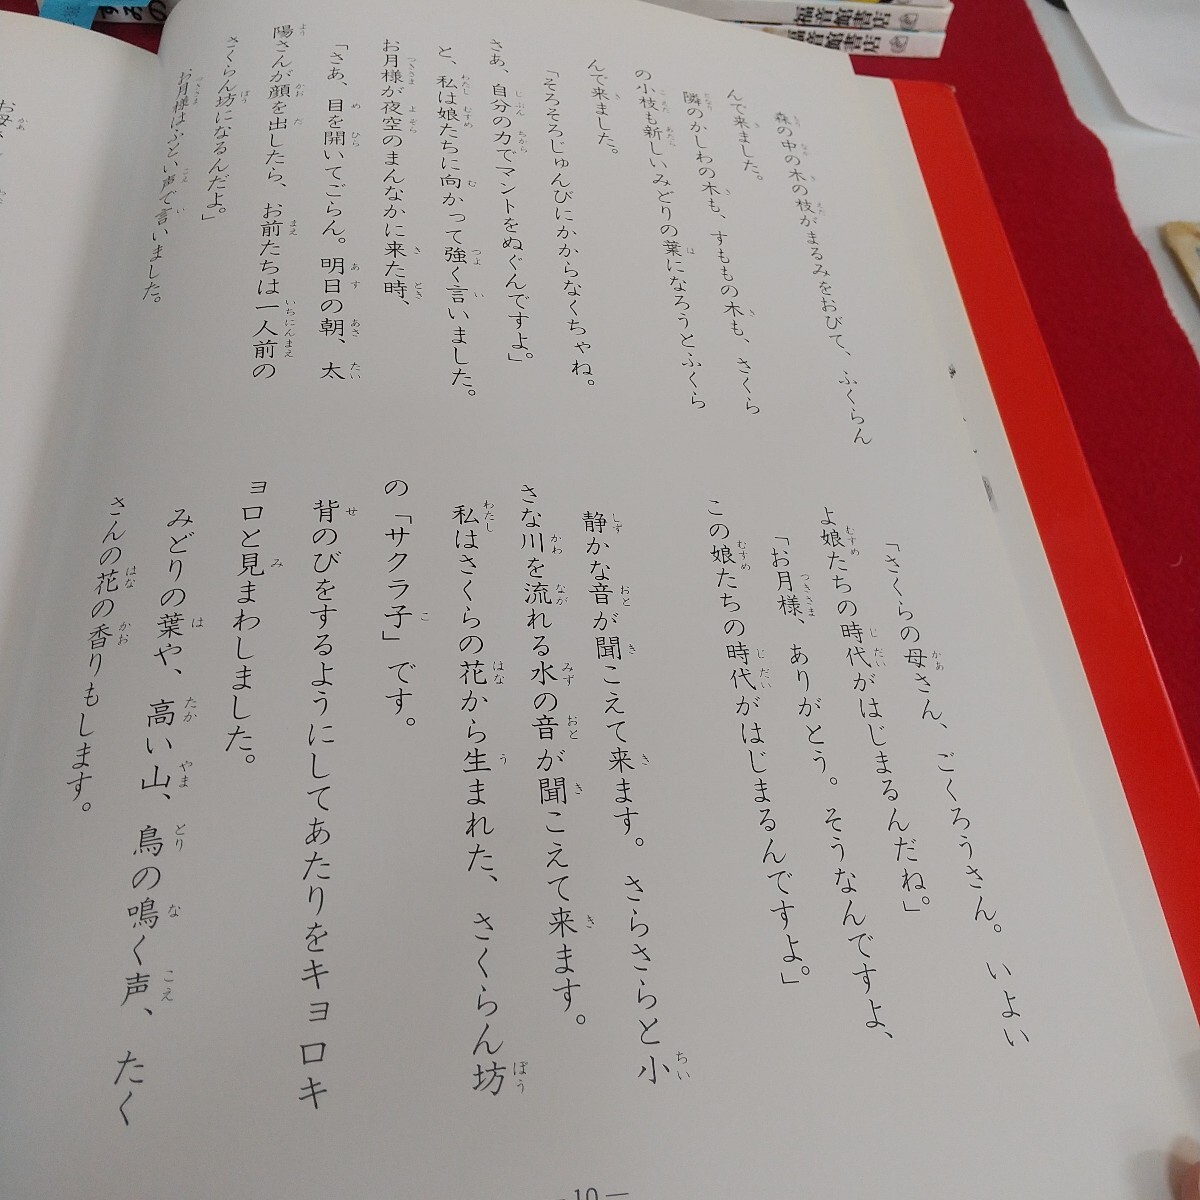 森の中の木の枝がまるみをおびて、ふくらん
んで来ました。
隣のかしわの木も、すももの木も、さくら
の小枝も新しいみどりの葉になろうとふくら
んで来ました。
「そろそろじゅんびにかからなくちゃね。
さあ、自分の力でマントをぬぐんですよ。」
と、私は娘たちに向かって強く言いました。
お月様が夜空のまんなかに来た時、
「さあ、目を開いてごらん。明日の朝、太
陽さんが顔を出したら、お前たちは一人前の
さくらん坊になるんだよ。」
お月様はふとい声で言いました。
「さくらの母さん、ごくろうさん。いよい
よ娘たちの時代がはじまるんだね。」
「お月様、ありがとう。そうなんですよ、
この娘たちの時代がはじまるんですよ。」
静かな音が聞こえて来ます。さらさらと小
さな川を流れる水の音が聞こえて来ます。
私はさくらの花から生まれた、さくらん坊
の「サクラ子」です。
背のびをするようにしてあたりをキョロキ
ョロと見まわしました。
みどりの葉や、高い山、鳥の鳴く声、たく
さんの花の香りもします。
—10—
お母さ
福音館書店
福音館書店